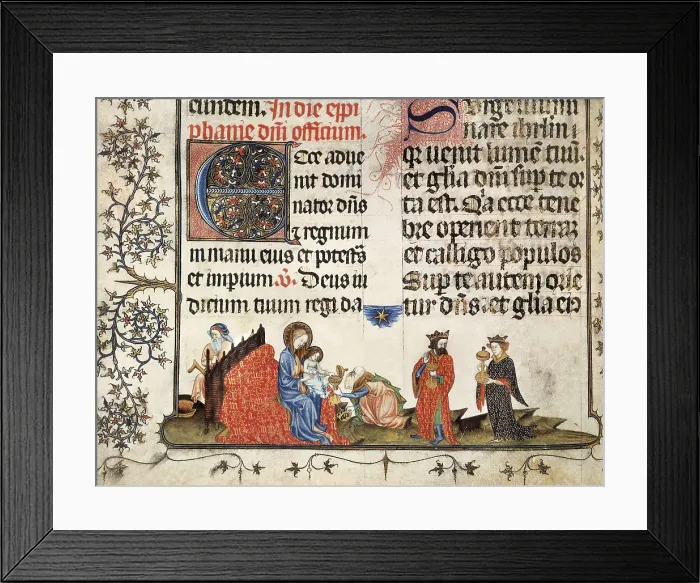 eundem. In die epi
phanie dñi officium.
Ecce adue
nit domi
nator dñs
⁊ regnum
in manu eius et potestas
et impium. ℣. Deus iu
dicium tuum regi da
Surge illumi
nare ihrlm
qr uenit lumē tuū.
et glia dñi sup te or
ta est. Qa ecce tene
bre operient terraz
et calligo populos
Sup te autem orie
tur dñs. et glia eiꝰ